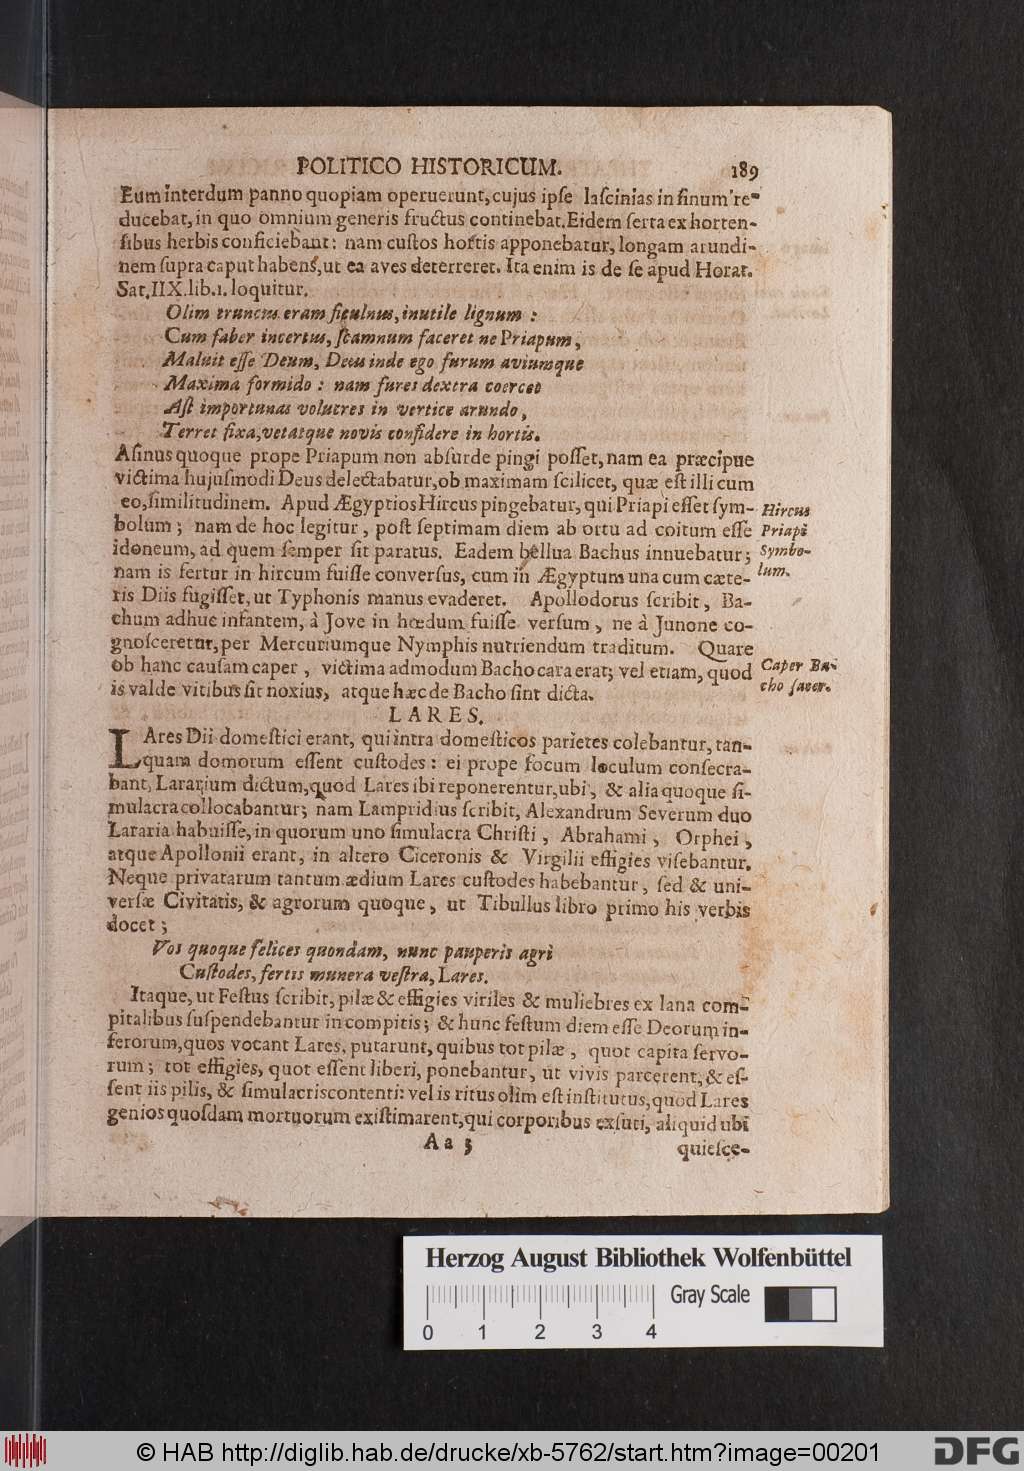 POLITICO HISTORICUM. 189
Eum interdum panno quopiam operuerunt, cujus ipſe laſcinias in ſinum re-
ducebat, in quo omnium generis fructus continebat. Eidem ſerta ex horten-
ſibus herbis conficiebant: nam cuſtos hortis apponebatur, longam arundi-
nem ſupra caput habens, ut ea aves deterreret. Ita enim is de ſe apud Horat.
Sat. IIX. lib. 1. loquitur.
Olim truncus eram ficulnus, inutile lignum:
Cum faber incertus, ſcamnum faceret ne Priapum,
Maluit eſſe Deum, Deus inde ego furum aviumque
Maxima formido: nam fures dextra coercet
Aſt importunas volucres in vertice arundo,
Terret fixa, vetatque novis conſidere in hortis.
Aſinus quoque prope Priapum non abſurde pingi poſſet, nam ea præcipue
victima hujuſmodi Deus delectabatur, ob maximam ſcilicet, quæ eſt illi cum
eo, ſimilitudinem. Apud Ægyptios Hircus pingebatur, qui Priapi eſſet ſym-
bolum; nam de hoc legitur, poſt ſeptimam diem ab ortu ad coitum eſſe
idoneum, ad quem ſemper ſit paratus. Eadem bellua Bachus innuebatur;
nam is fertur in hircum fuiſſe converſus, cum in Ægyptum una cum cæte-
ris Diis fugiſſet, ut Typhonis manus evaderet. Apollodorus ſcribit, Ba-
chum adhuc infantem, à Jove in hœdum fuiſſe verſum, ne à Junone co-
gnoſceretur, per Mercuriumque Nymphis nutriendum traditum. Quare
ob hanc cauſam caper, victima admodum Bacho cara erat; vel etiam, quod
is valde vitibus ſit noxius, atque hæc de Bacho ſint dicta.
Hircus
Priapi
Symbo-
lum.
Caper Ba-
cho ſacer.
LARES.
LAres Dii domeſtici erant, qui intra domeſticos parietes colebantur, tan-
quam domorum eſſent cuſtodes: ei prope focum loculum conſecra-
bant, Lararium dictum, quod Lares ibi reponerentur, ubi, & alia quoque ſi-
mulacra collocabantur; nam Lampridius ſcribit, Alexandrum Severum duo
Lararia habuiſſe, in quorum uno ſimulacra Chriſti, Abrahami, Orphei,
atque Apollonii erant, in altero Ciceronis & Virgilii effigies viſebantur.
Neque privatarum tantum ædium Lares cuſtodes habebantur, ſed & uni-
verſæ Civitatis, & agrorum quoque, ut Tibullus libro primo his verbis
docet;
Vos quoque felices quondam, nunc pauperis agri
Cuſtodes, fertis munera veſtra, Lares.
Itaque, ut Feſtus ſcribit, pilæ & effigies viriles & muliebres ex lana com-
pitalibus ſuſpendebantur in compitis; & hunc feſtum diem eſſe Deorum in-
ferorum, quos vocant Lares, putarunt, quibus tot pilæ, quot capita ſervo-
rum; tot effigies, quot eſſent liberi, ponebantur, ut vivis parcerent, & eſ-
ſent iis pilis, & ſimulacris contenti: vel is ritus olim eſt inſtitutus, quod Lares
genios quoſdam mortuorum exiſtimarent, qui corporibus exſuti, aliquid ubi
Aa 3 quieſce-
Herzog August Bibliothek Wolfenbüttel
Gray Scale
0 1 2 3 4
© HAB http://diglib.hab.de/drucke/xb-5762/start.htm?image=00201
DFG